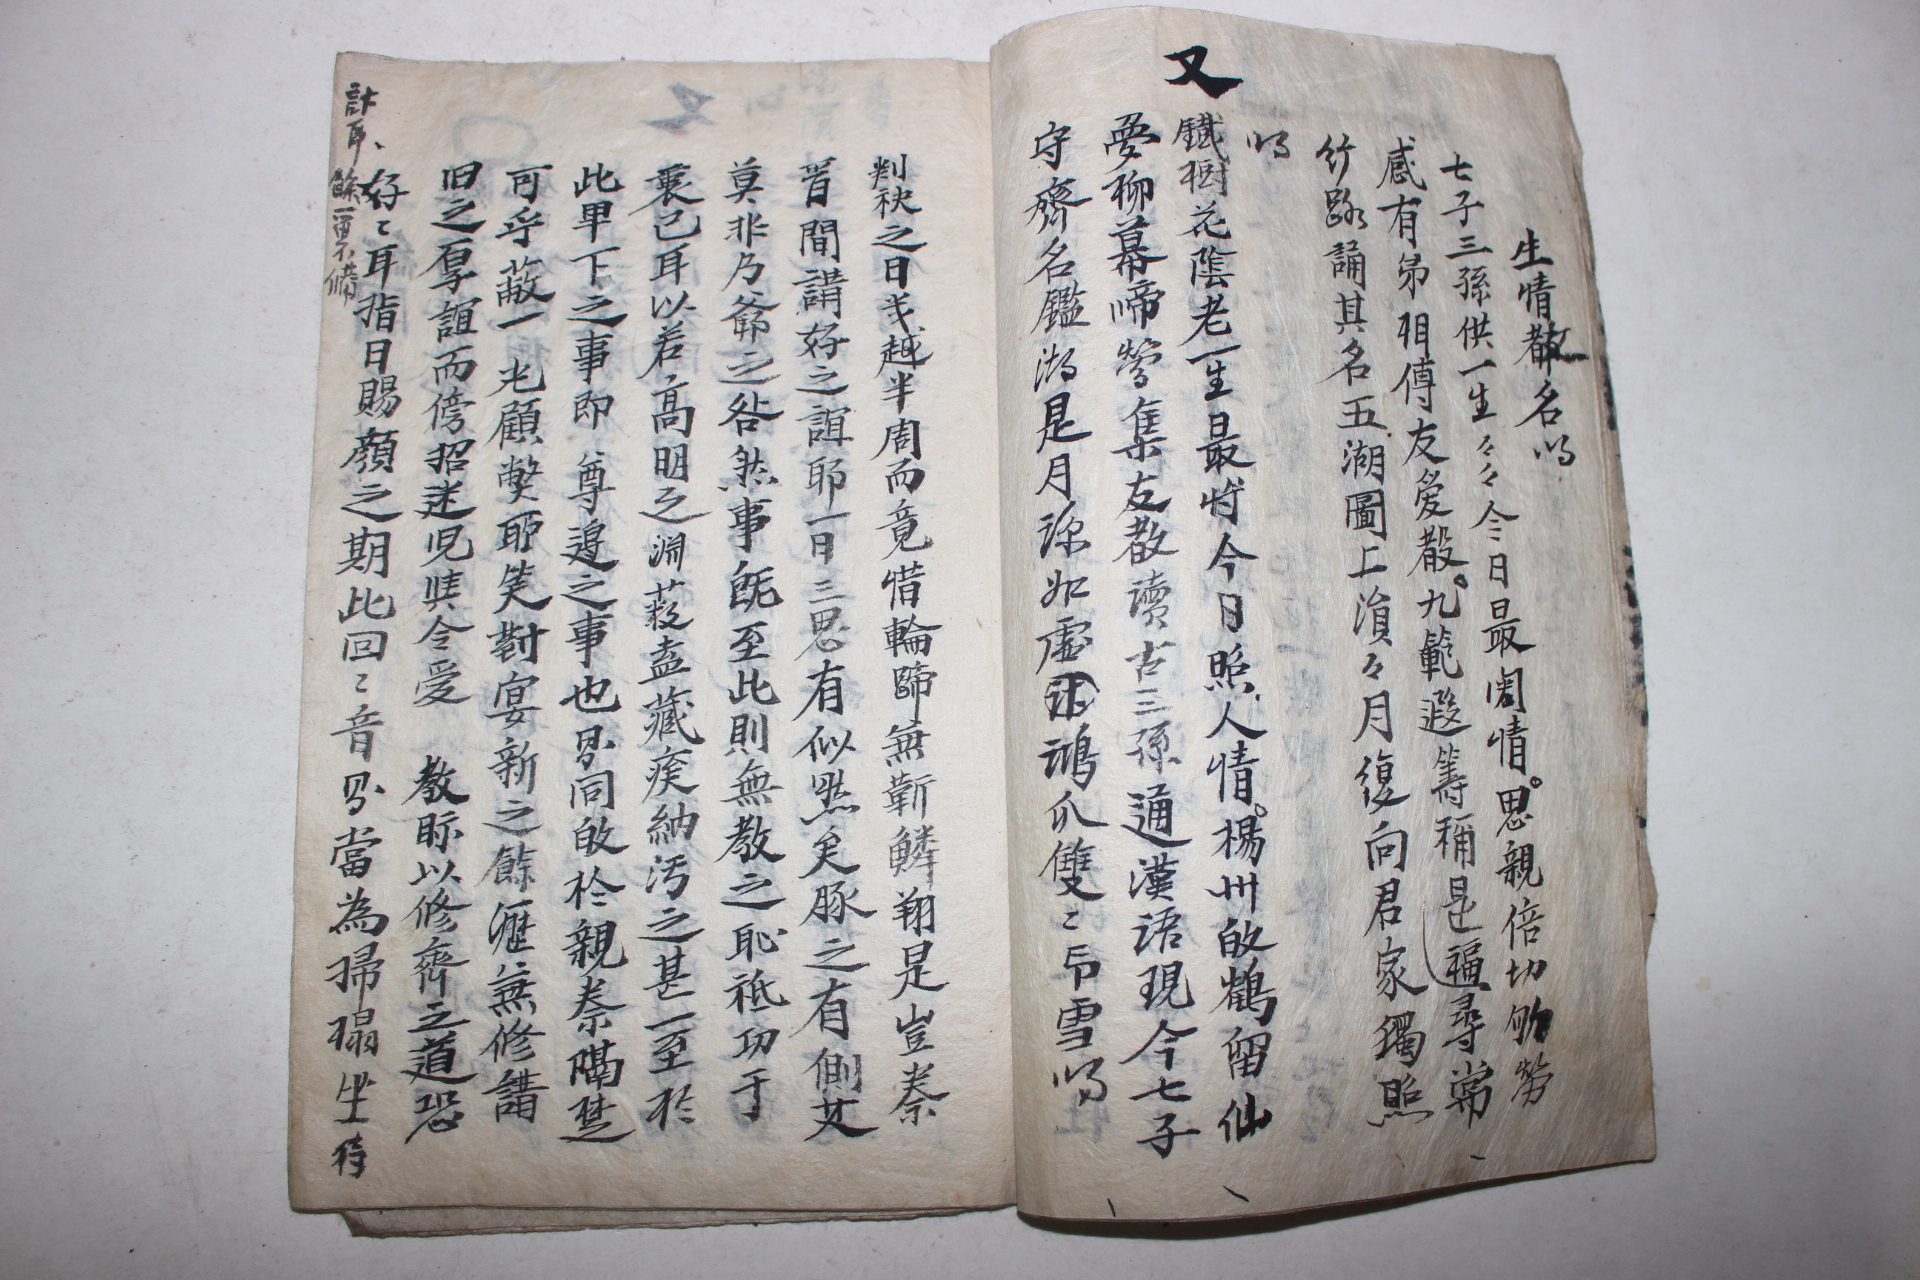 生情散名以
七子三孫供一生々々今日最関情思親倍切劬勞
感有弟相傳友愛殷九範遐籌稱是福尋常
竹路誦其名五湖圖上湏々月復向君家獨照
以
又
鐵樹花陰老一生最将今日照人情楊州政鶴留仙
夢柳幕啼鶯集友散讀古三孫通漢語現今七子
守齊名鑑湖是月除如虛鴻爪雙〻印雪以
判袂之日戈越半周而竟惜輪蹄無蘄鱗翔是豈秦
晋間講好之誼耶一日三思有似然矣豚之有側艾
莫非乃爺之咎然事旣至此則無教之耻秪切于
裏己耳以若高明之淵菽盍藏疾納汚之甚一至於
此甲下之事即尊邊之事也易同的於親秦隔楚
可乎蔽一光顧獘耶笑對宴新之餘瀝兼修講
旧之厚誼而傍招迷児娱令愛 教眎以修齊之道恐
好〻耳指日賜顔之期此回〻音另當為掃榻坐待
計耳餘一實不備